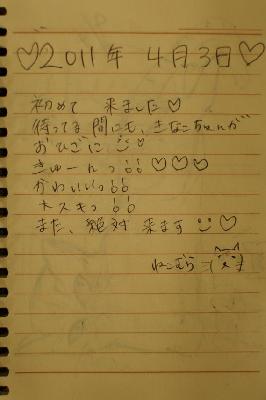 ♡2011年 4月3日♡
初めて 来ました♡
待ってる間にも、きなこちゃんが
おひざに
きゅーんっ!! ♡♡♡
かわいいっ!!
大スキっ!!
また、絶対 来ます ♡
ねこむら